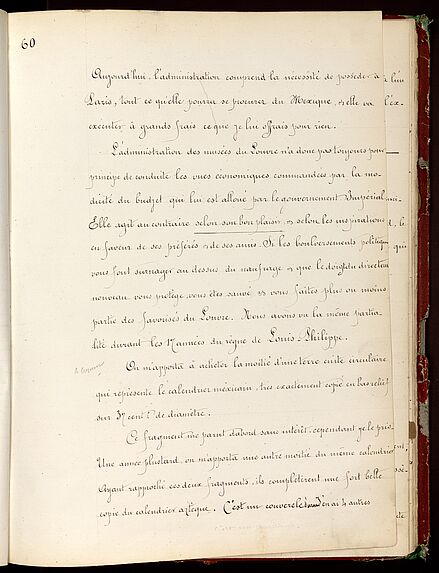 60
Aujourd'hui, l'administration comprend la necessité de posseder à
Paris, tout ce qu'elle pourra se procurer du Mexique, & elle va l'ex
executer à grands frais ce que je lui offrais pour rien.
L'administration des musées du Louvre n'a donc pas toujours pour
principe de conduite les vues économiques commandées par la mo-
dicité du budjet qui lui est alloué par le gouvernement Impérial.
Elle agit au contraire selon son bon plaisir, & selon les inspirations
en faveur de ses préférés & de ses amis. Si les boulversements politiques
vous font surnager au dessus du naufrage & que le doigt du directeur
nouveau vous protège, vous êtes sauvé & vous faites plus ou moins
partie des favorisés du Louvre. Nous avons vu la même partia-
lité durant les 17 années du règne de Louis-Philippe.
On m'apporta à acheter la moitié d'une terre cuite circulaire
qui représente le calendrier méxicain, très exactement copié en bas relief
sur 37 cent. de diamètre.
Ce fragment me parut d'abord sans intérêt, cependant je le pris.
Une année plus tard, on m'apporta une autre moitié du même calendrier
Ayant rapproché ces deux fragments, ils complétèrent une fort belle
copie du calendrier aztèque. C'est un couvercle j'en ai 4 autres